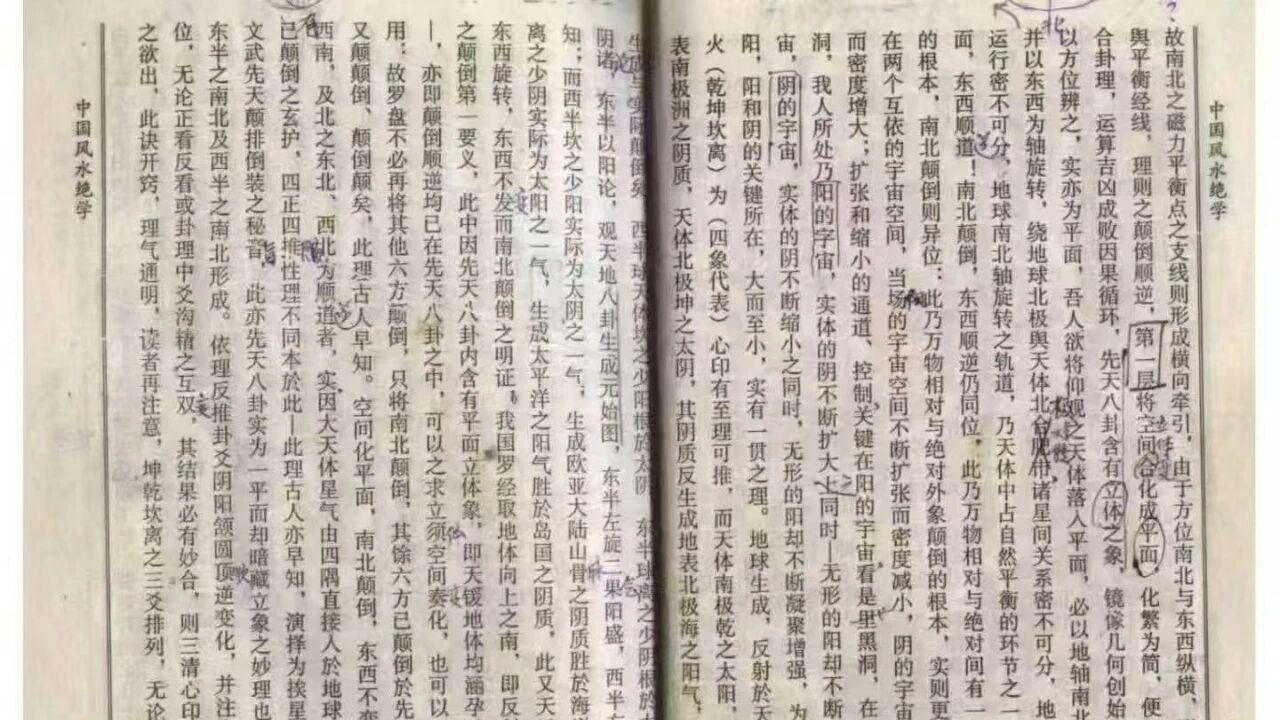 中国风水绝学
故南北之磁力平衡点之支线则形成横向牵引，由于方位南北与东西纵横，
舆平衡经线，理则之颠倒顺逆，第一层将空间合化成平面，化繁为简，便
合卦理，运算吉凶成败因果循环，先天八卦含有立体之象，镜像几何创始
以方位辨之，实亦为平面，吾人欲将仰观之天体落入平面，必以地轴南北
并以东西为轴旋转，绕地球北极舆天体北台诸星间关系密不可分，地
运行密不可分，地球南北轴旋转之轨道，乃天体中占自然平衡的环节之一
面，东西顺道！南北颠倒，东西顺逆仍同位，此乃万物相对与绝对间有一
的根本，南北颠倒则异位：此乃万物相对与绝对外象颠倒的根本，实则更
在两个互依的宇宙空间，当场的宇宙空间不断扩张而密度减小，阴的宇宙
而密度增大；扩张和缩小的通道、控制关键在阳的宇宙看是里黑洞，在
洞，我人所处乃阳的字宙，实体的阴不断扩大上同时—无形的阳却不断
宙，阴的宇宙，实体的阴不断缩小之同时，无形的阳却不断凝聚增强，为
阳，阳和阴的关键所在，大而至小，实有一贯之理。地球生成，反射於天
火（乾坤坎离）为（四象代表）心印有至理可推，而天体南极乾之太阳，
表南极洲之阴质，天体北极坤之太阴，其阴质反生成地表北极海之阳气，
实际颠倒矣，西半球天体坎之少阳根於太阴，东半球离之少阴根於
阴诸，东半以阳论，观天地八卦生成元始图，东半左旋二果阳盛，西半
知；而西半坎之少阳实际为太阴之一气，生成欧亚大陆山骨之阴质胜於海
离之少阴实际为太阳之一气，生成太平洋之阳气胜於岛国之阴质，此又天
东西旋转，东西不发而南北颠倒之明证。我国罗经取地体向上之南，即反
之颠倒第一要义，此中因先天八卦内含有平面立体象，即天锾地体均涵孕
—，亦即颠倒顺逆均已在先天八卦之中，可以之求立须空间奏化，也可以
用：故罗盘不必再将其他六方颠倒，只将南北颠倒，其馀六方已颠倒於先
又颠颠倒、颠倒颠矣，此理古人早知。空间化平面，南北颠倒，东西不变
西南，及北之东北、西北为顺道者，实因大天体星气由四隅直接人於地球
己颠倒之玄护，四正四推性理不同本於此—此理古人亦早知，演择为挨星
文武先天颠排倒装之秘音，此亦先天八卦实为一平面却暗藏立象之妙理也
东半之南北及西半之南北形成。依理反推卦爻阴阳颔圆顶逆变化，并注
位，无论正看反看或卦理中爻沟精之互双，其结果必有妙合，则三清心印
之欲出，此诀开窍，理气通明，读者再注意，坤乾坎离之三爻排列，无论
中国风水绝学